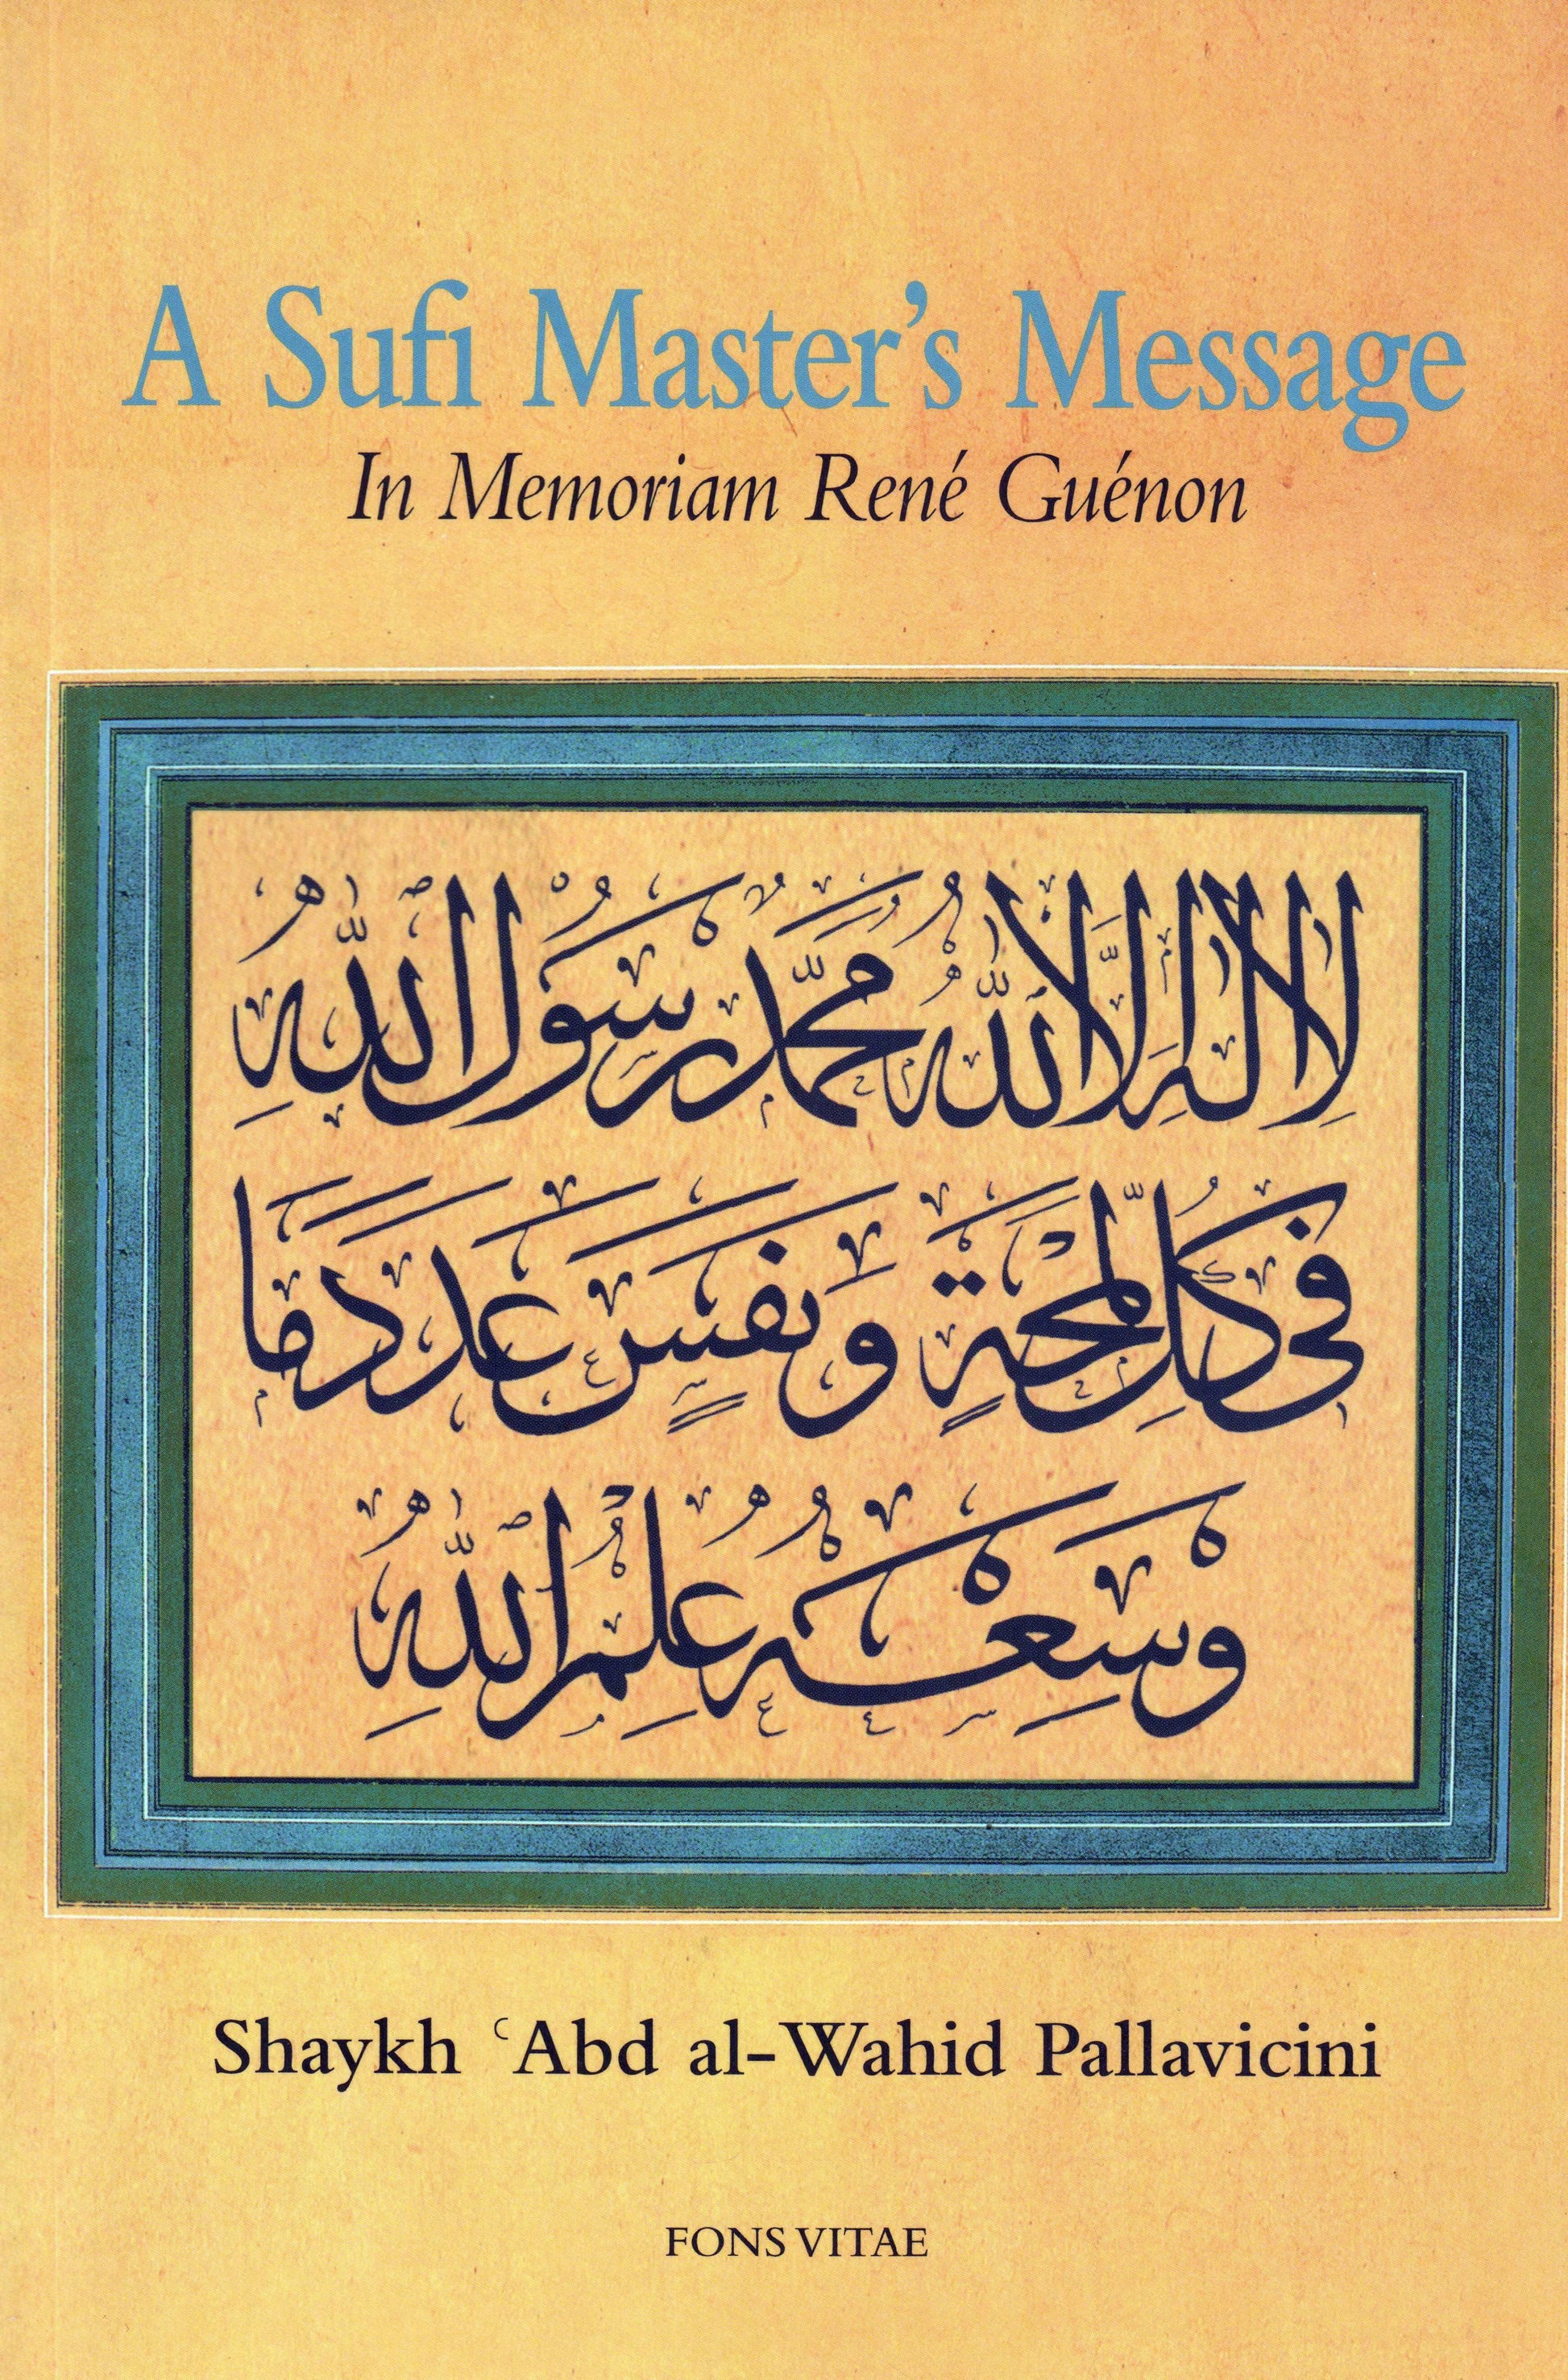 A Sufi Master's Message
In Memoriam René Guénon
لَا إِلٰهَ إِلَّا اللهُ مُحَمَّدٌ رَسُولُ اللهِ
فِي كُلِّ لَمْحَةٍ وَنَفَسٍ عَدَدَ مَا
وَسِعَهُ عِلْمُ اللهِ
Shaykh ʿAbd al-Wahid Pallavicini
FONS VITAE